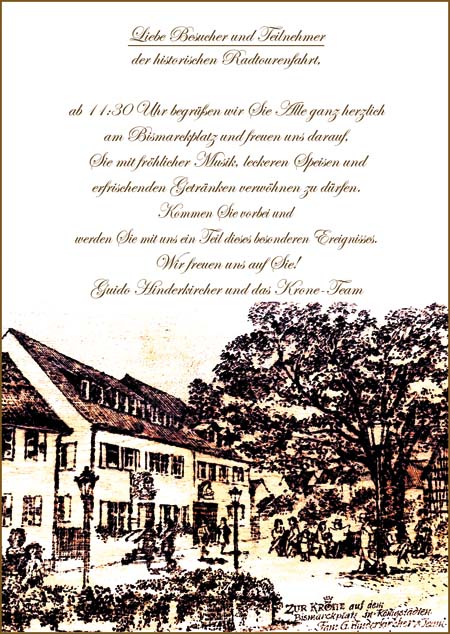 Liebe Besucher und Teilnehmer
der historischen Radtourenfahrt,
ab 11:30 Uhr begrüßen wir Sie Alle ganz herzlich
am Bismarckplatz und freuen uns darauf,
Sie mit fröhlicher Musik, leckeren Speisen und
erfrischenden Getränken verwöhnen zu dürfen.
Kommen Sie vorbei und
werden Sie mit uns ein Teil dieses besonderen Ereignisses.
Wir freuen uns auf Sie!
Guido Hinderkircher und das Krone-Team
ZUR KRONE auf dem
Bismarckplatz in Königstädten
Fam. G. Hinderkircher &